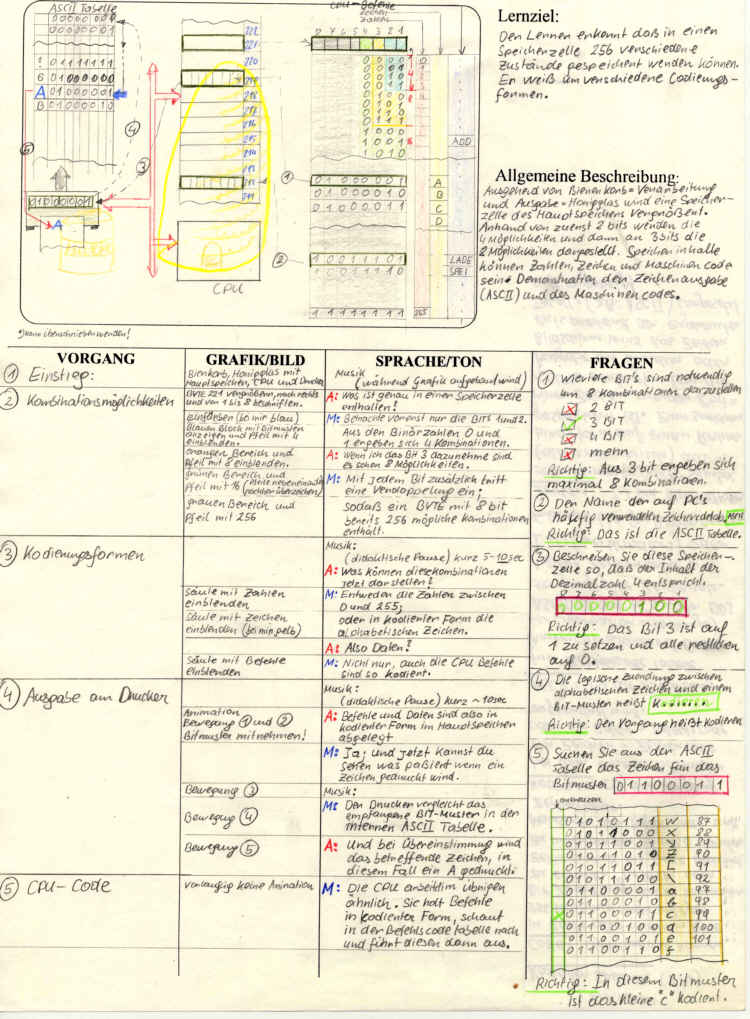 ASCII Tabelle
CPU-Befehle
Zeichen
Zahlen
8 7 6 5 4 3 2 1
222
221
220
219
218
217
216
215
214
213
ADD
A
B
C
D
LADE
SPEI
255
01000001
A
CPU
*) kann überschrieben werden!
Lernziel:
Der Lerner erkennt daß in einer
Speicherzelle 256 verschiedene
Zustände gespeichert werden können.
Er weiß um verschiedene Codierungs-
formen.
Allgemeine Beschreibung:
Ausgehend von Bienenkorb = Verarbeitung
und Ausgabe = Honigglas wird eine Speicher-
zelle des Hauptspeichers vergrößert.
Anhand von zuerst 2 bits werden die
4 Möglichkeiten und dann an 3 bits die
8 Möglichkeiten dargestellt. Speicherinhalte
können Zahlen, Zeichen und Maschinencode
sein. Demonstration der Zeichenausgabe
(ASCII) und des Maschinencodes.
VORGANG
① Einstieg:
② Kombinationsmöglichkeiten
③ Kodierungsformen
④ Ausgabe am Drucker
⑤ CPU-Code
GRAFIK/BILD
Bienkorb, Honigglas mit
Hauptspeicher, CPU und Drucker
BYTE 221 vergrößern, nach rechts
und von 1 bis 8 beschriften.
einfärben (bo mir blau)
Blauen Block mit Bitmuster
anzeigen und Pfeil mit 4
einblenden.
orangen Bereich und
Pfeil mit 8 einblenden.
grünen Bereich und
Pfeil mit 16
grauen Bereich und
Pfeil mit 256
Säule mit Zahlen
einblenden
Säule mit Zeichen
einblenden (bei mir gelb)
Säule mit Befehle
einblenden
Animation
Bewegung ① und ②
Bitmuster mitnehmen!
Bewegung ③
Bewegung ④
Bewegung ⑤
vorläufig keine Animation
SPRACHE/TON
Musik
(während Grafik aufgebaut wird)
A: Was ist genau in einer Speicherzelle
enthalten?
M: Betrachte vorerst nur die BITS 1 und 2.
Aus den Binärzahlen 0 und
1 ergeben sich 4 Kombinationen.
A: Wenn ich das Bit 3 dazunehme sind
es schon 8 Möglichkeiten.
M: Mit jedem Bit zusätzlich tritt
eine Verdoppelung ein;
sodaß ein BYTE mit 8 bit
bereits 256 mögliche Kombinationen
enthält.
Musik:
(didaktische Pause) kurz 5-10sec
A: Was können diese Kombinationen
jetzt darstellen?
M: Entweder die Zahlen zwischen
0 und 255;
oder in kodierter Form die
alphabetischen Zeichen.
A: Also Daten?
M: Nicht nur, auch die CPU Befehle
sind so kodiert.
Musik:
(didaktische Pause) kurz ~10sec
A: Befehle und Daten sind also in
kodierter Form im Hauptspeicher
abgelegt
M: Ja; und jetzt kannst du
sehen was passiert wenn ein
Zeichen gedruckt wird.
Musik:
M: Der Drucker vergleicht das
empfangene BIT-Muster in der
internen ASCII Tabelle.
A: Und bei Übereinstimmung wird
das betreffende Zeichen, in
diesem Fall ein A gedruckt.
M: Die CPU arbeitet im übrigen
ähnlich. Sie holt Befehle
in kodierter Form, schaut
in der Befehlscode tabelle nach
und führt diesen dann aus.
FRAGEN
① Wieviele BIT's sind notwendig
um 8 Kombinationen darzustellen
2 BIT
3 BIT
4 BIT
mehr
Richtig: Aus 3 bit ergeben sich
maximal 8 Kombinationen.
② Der Name der auf PC's
häufig verwendeten Zeichencodetab. ASCII
Richtig: Das ist die ASCII Tabelle.
③ Beschreiben Sie diese Speicher-
zelle so, daß der Inhalt der
Dezimalzahl 4 entspricht.
8 7 6 5 4 3 2 1
0 0 0 0 0 1 0 0
Richtig: Das Bit 3 ist auf
1 zu setzen und alle restlichen
auf 0.
④ Die logische Zuordnung zwischen
alphabetischen Zeichen und einem
BIT-Muster heißt K.......
Richtig: Der Vorgang heißt kodieren
⑤ Suchen Sie aus der ASCII
Tabelle das Zeichen für das
Bitmuster 01100011
01010111 W 87
01011000 X 88
01011001 Y 89
01011010 Z 90
01011011 [ 91
01011100 \ 92
01100001 a 97
01100010 b 98
01100011 c 99
01100100 d 100
01100101 e 101
01100110 f
Richtig: In diesem Bitmuster
ist das kleine "c" kodiert.